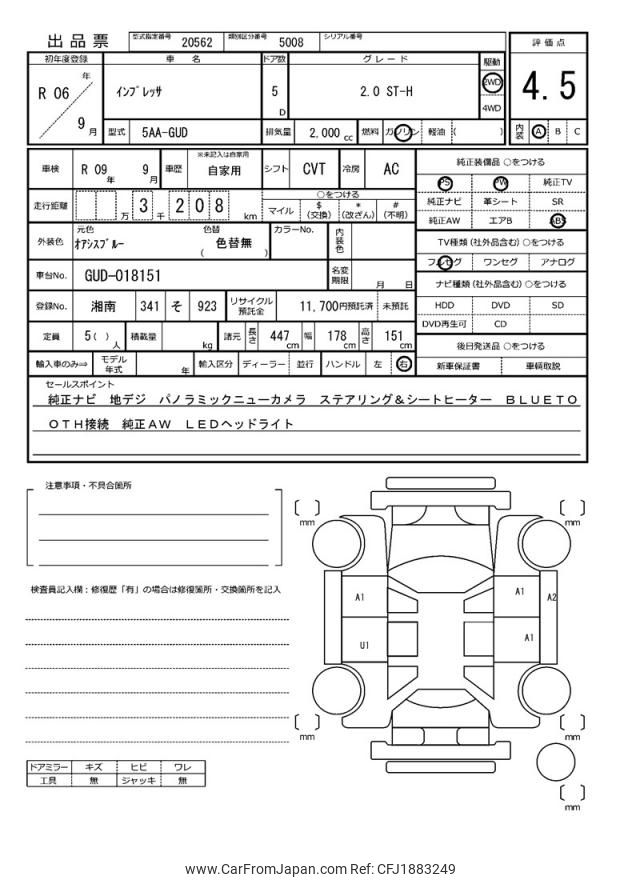 出品票 型式指定番号 20562 類別区分番号 5008 シリアル番号
初年度登録 車名 ドア数 グレード 駆動 評価点
R 06 年 9 月 ｲﾝﾌﾟﾚｯｻ 5 D 2.0 ST-H 2WD 4WD 4.5
型式 5AA-GUD 排気量 2,000 cc 燃料 ガソリン 軽油 ( ) 内装 A B C
車検 R 09 年 9 月 車歴 ※未記入は自家用 自家用 シフト CVT 冷房 AC
走行距離 万 3 千 2 0 8 km ○をつける
マイル $(交換) *(改ざん) #(不明)
外装色 元色 ｵｱｼｽﾌﾞﾙｰ 色替 ( 色替無 ) カラーNo. 内装色
車台No. GUD-018151 名変期限 月 日
登録No. 湘南 341 そ 923 リサイクル預託金 11,700円預託済 未預託
定員 5( ) 人 積載量 kg 諸元 長さ 447 cm 幅 178 cm 高さ 151 cm
輸入車のみ⇒ モデル年式 年 輸入区分 ディーラー 並行 ハンドル 左 右
純正装備品 ○をつける
PS PW 純正TV
純正ナビ 革シート SR
純正AW エアB ABS
TV種類 (社外品含む) ○をつける
フルセグ ワンセグ アナログ
ナビ種類 (社外品含む) ○をつける
HDD DVD SD
DVD再生可 CD
後日発送品 ○をつける
新車保証書 車輌取説
セールスポイント
純正ナビ 地デジ パノラミックニューカメラ ステアリング＆シートヒーター ＢＬＵＥＴＯ
ＯＴＨ接続 純正ＡＷ ＬＥＤヘッドライト
注意事項・不具合箇所
検査員記入欄：修復歴「有」の場合は修復箇所・交換箇所を記入
ドアミラー キズ ヒビ ワレ
工具 無 ジャッキ 無
mm mm
A1 A1 A2
U1 A1
mm mm
mm
www.CarFromJapan.com Ref: CFJ1883249